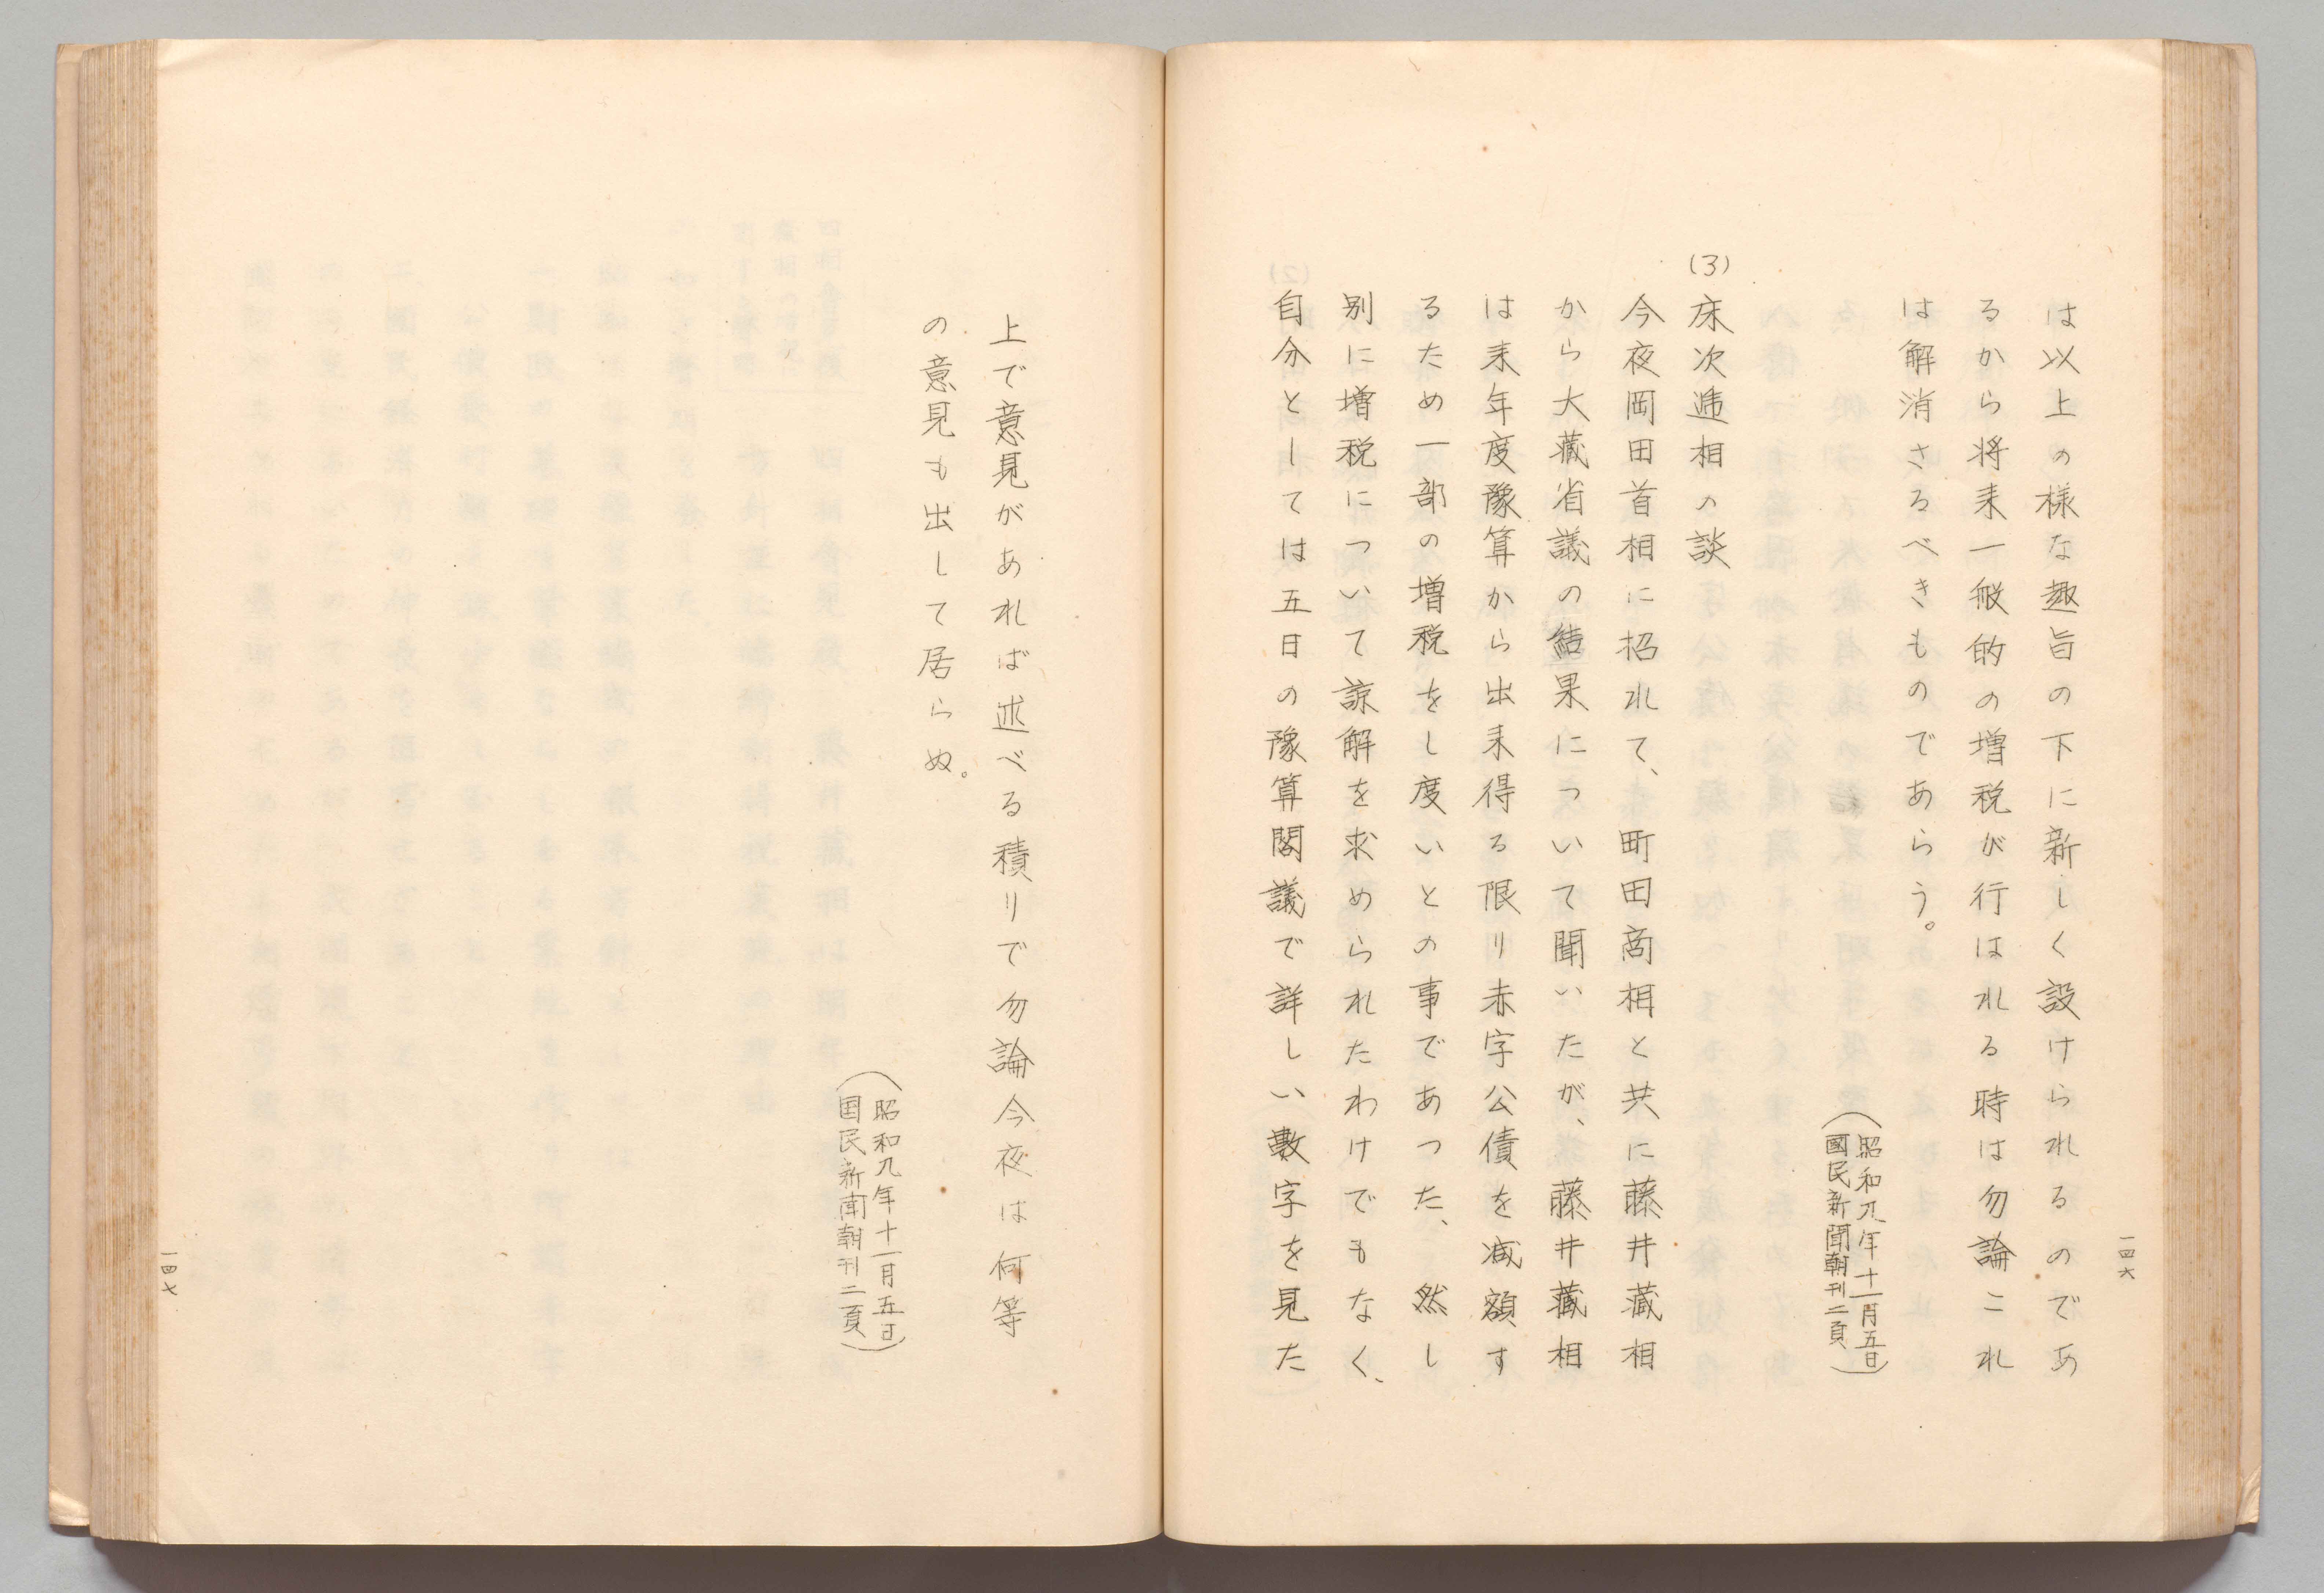 は以上の様な趣旨の下に新しく設けられるのであ
るから将来一般的の増税が行はれる時は勿論これ
は解消さるべきものであらう。
（昭和九年十一月五日
國民新聞朝刊二頁）
(3)床次逓相の談
今夜岡田首相に招れて、町田商相と共に藤井蔵相
から大藏省議の結果について聞いたが、藤井藏相
は来年度豫算から出来得る限り赤字公債を減額す
るため一部の増税をし度いとの事であつた、然し
別に増税について諒解を求められたわけでもなく、
自分としては五日の豫算閣議で詳しい数字を見た
一四六
上で意見があれば述べる積りで勿論今夜は何等
の意見も出して居らぬ。
（昭和九年十一月五日
国民新聞朝刊二頁）
一四七